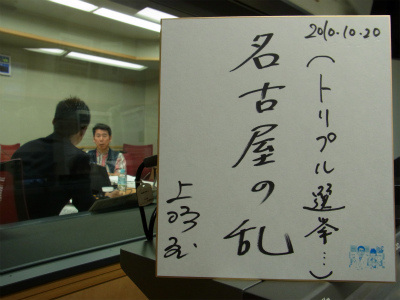 2010.10.20
(トリプル選挙…)
名古屋の乱
上脇